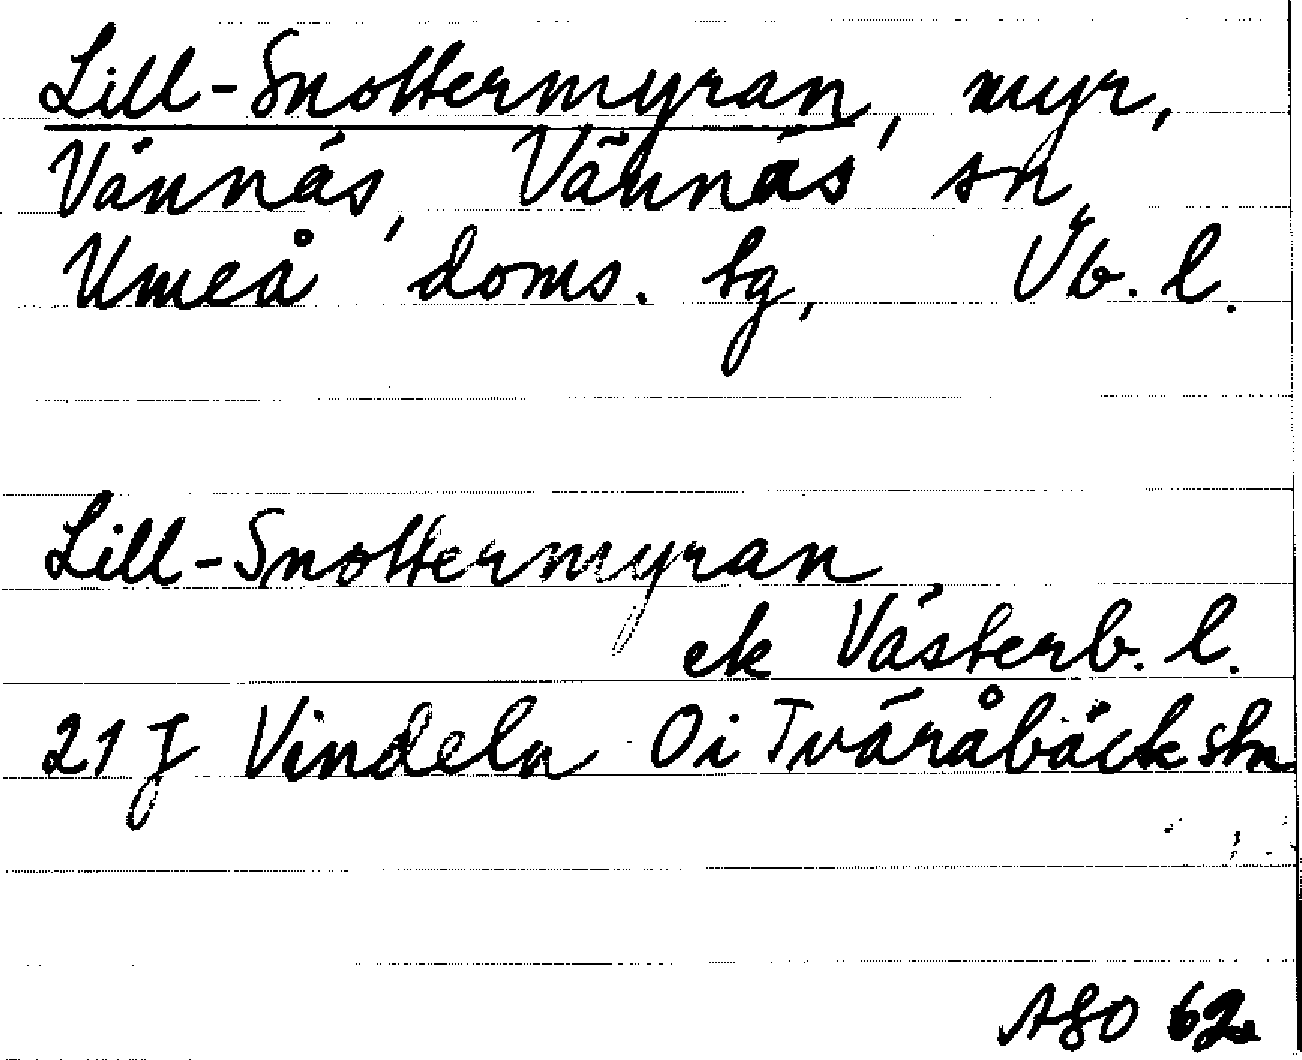 Lill-Snottermyran, myr,
Vännäs, Vännäs sn,
Umeå doms. tg, Vb. l.
Lill-Snottermyran
ek Västerb. l.
21 J Vindeln Oi Tväråbäck stn
ASO 62